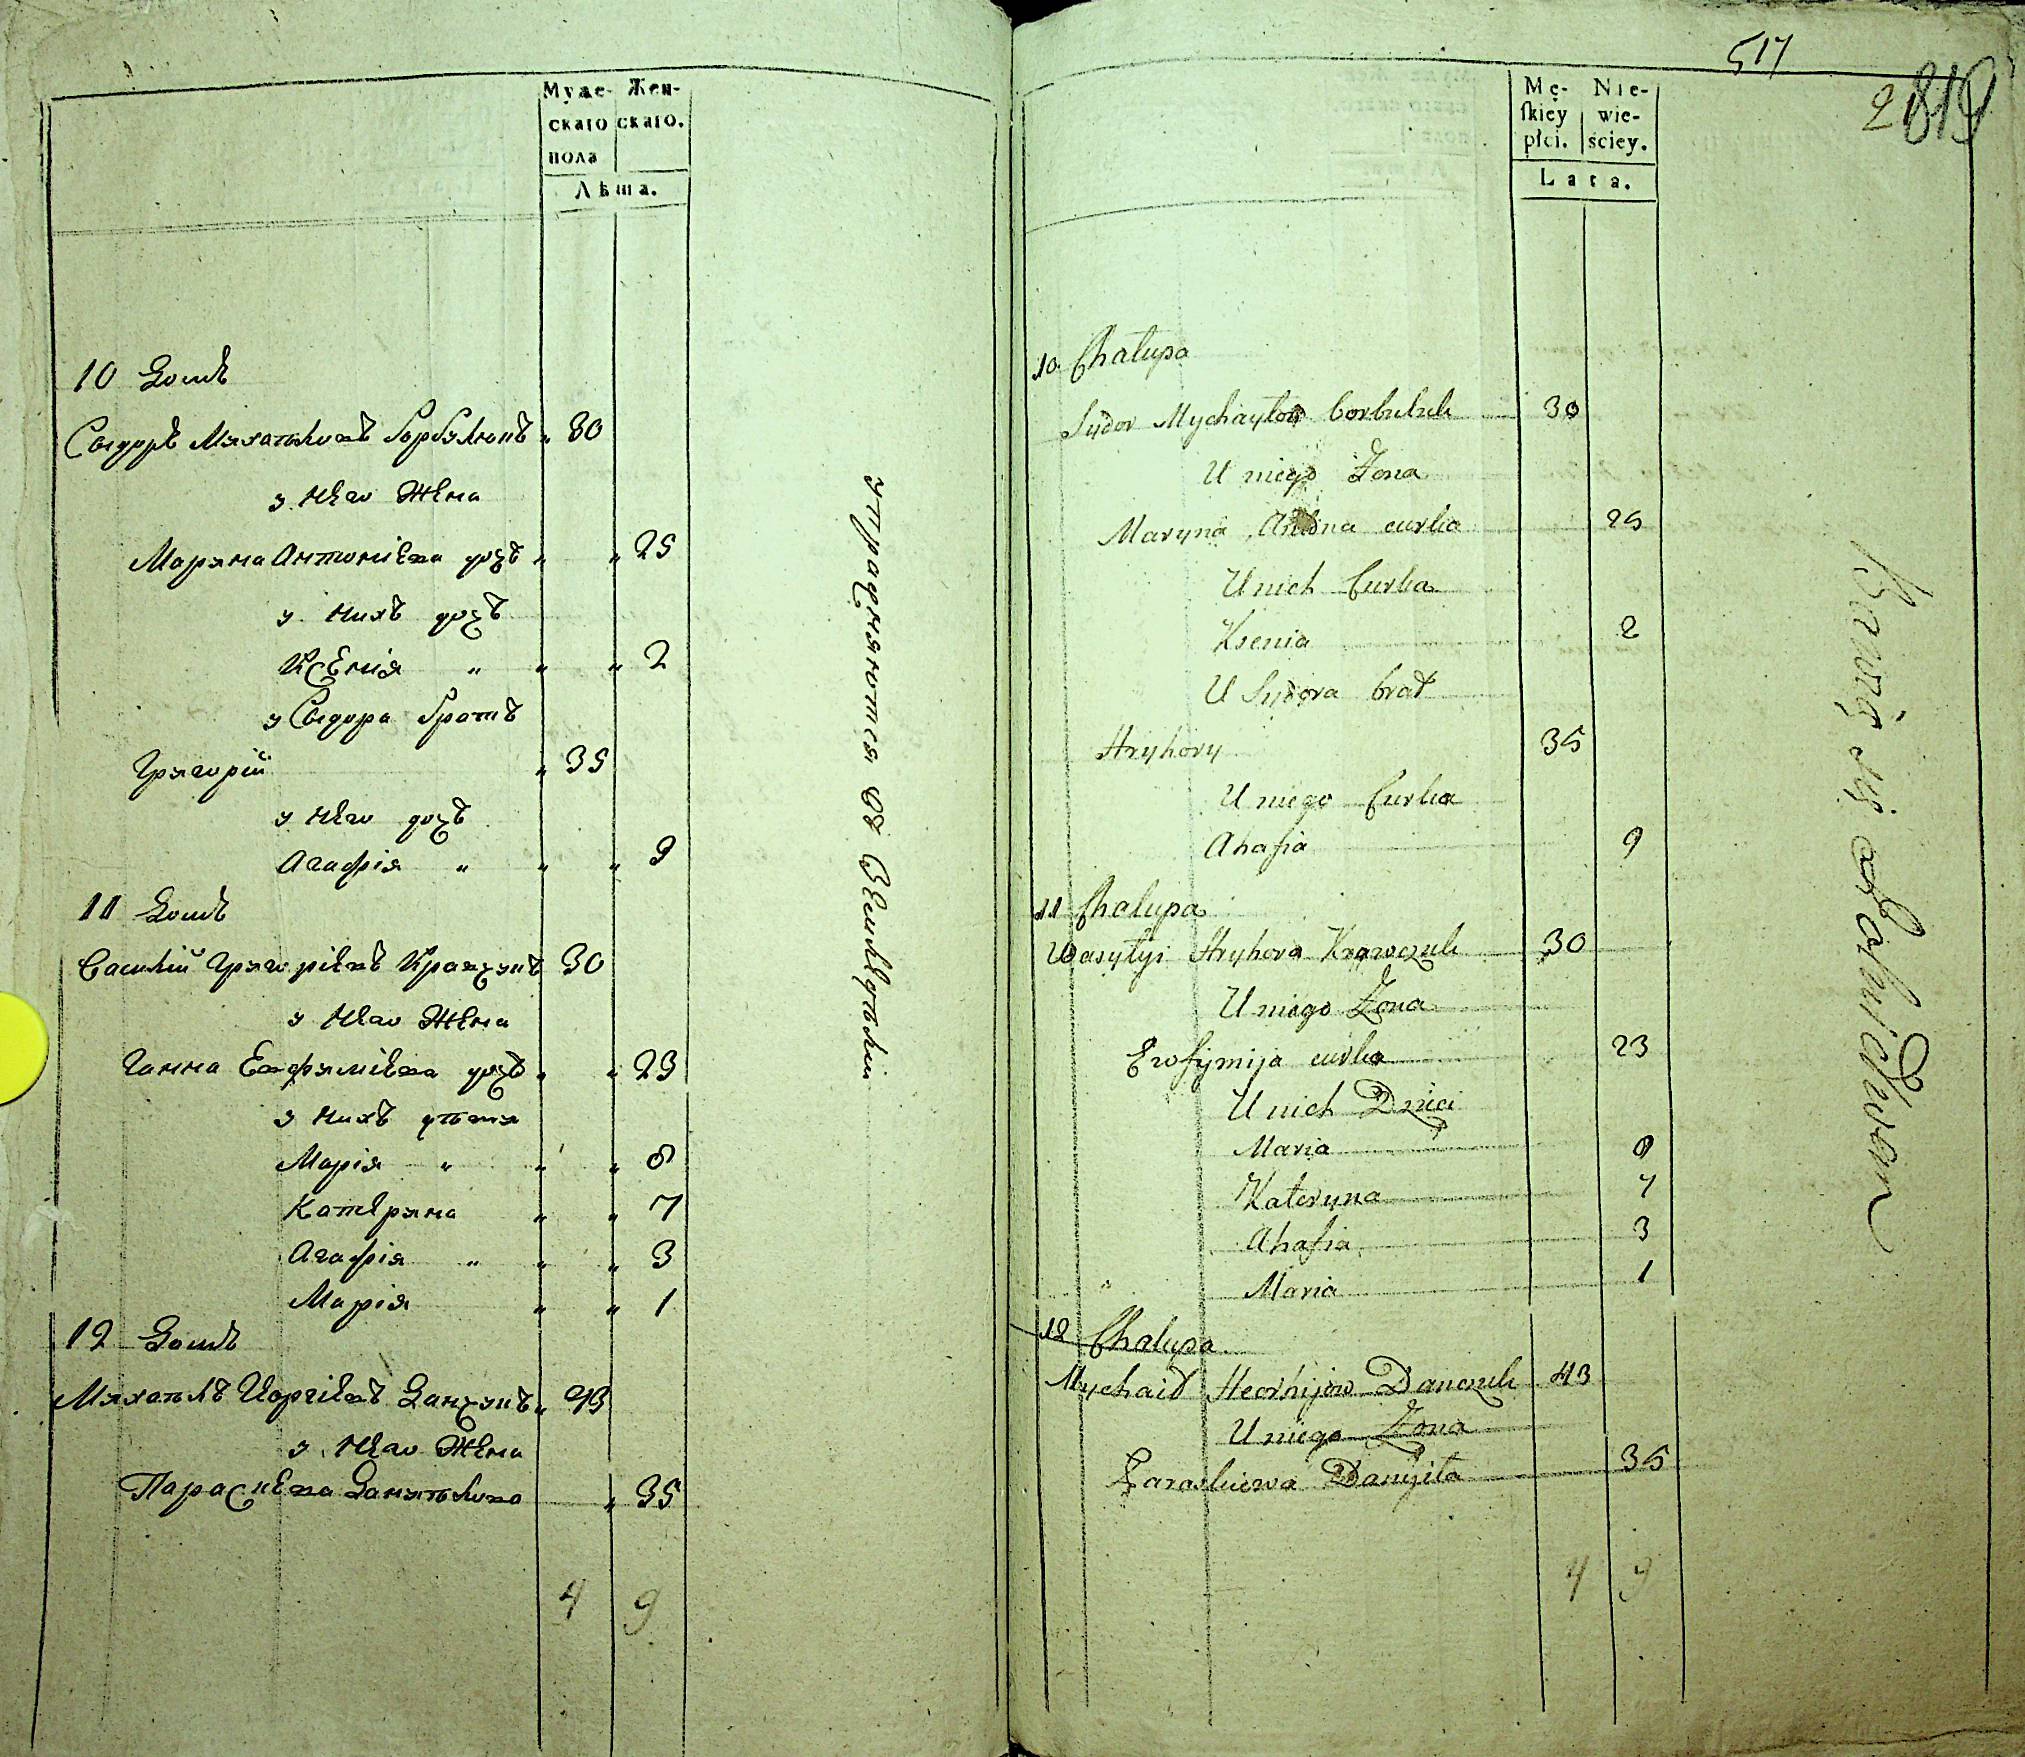 Муже- Жен-
скаго скаго.
пола
Лѣта.
10 Домъ
Сыдоръ Михайловъ Горбулюкъ „ 30
у Него Жена
Марина Антоніева дочъ „ „ 25
у Нихъ дочъ
Ксенія „ „ „ 2
у Сыдора братъ
Григорій „ 35
у Него дочъ
Агафія „ „ „ 9
11 Домъ
Василій Григоріевъ Кравчукъ 30
у Него Жена
Ганна Евфиміева дочъ „ „ 23
у Нихъ дѣти
Марія „ „ „ 8
Катерина „ „ 7
Агафія „ „ „ 3
Марія „ „ 1
12 Домъ
Михайлъ Иоргіевъ Данчукъ „ 43
у Него Жена
Параскева Данилова „ 35
4 9
упражняются въ Земледѣліи
517
2819
Mę- Nie-
skiey wie-
płci. ściey.
Lata.
10 Chałupa
Sydor Mychayłow Gorbuluk 30
U niego Żona
Maryna Antona curka 25
U nich Curka
Ksenia 2
U Sydora brat
Hryhory 35
U niego Curka
Ahafia 9
11 Chałupa
Wasylyi Hryhora Krawczuk 30
U niego Żona
Ewfymija curka 23
U nich Dzieci
Maria 8
Kateryna 7
Ahafia 3
Maria 1
12 Chałupa
Mychaił Heorhijow Danczuk 43
U niego Żona
Paraskiewa Danyiła 35
4 9